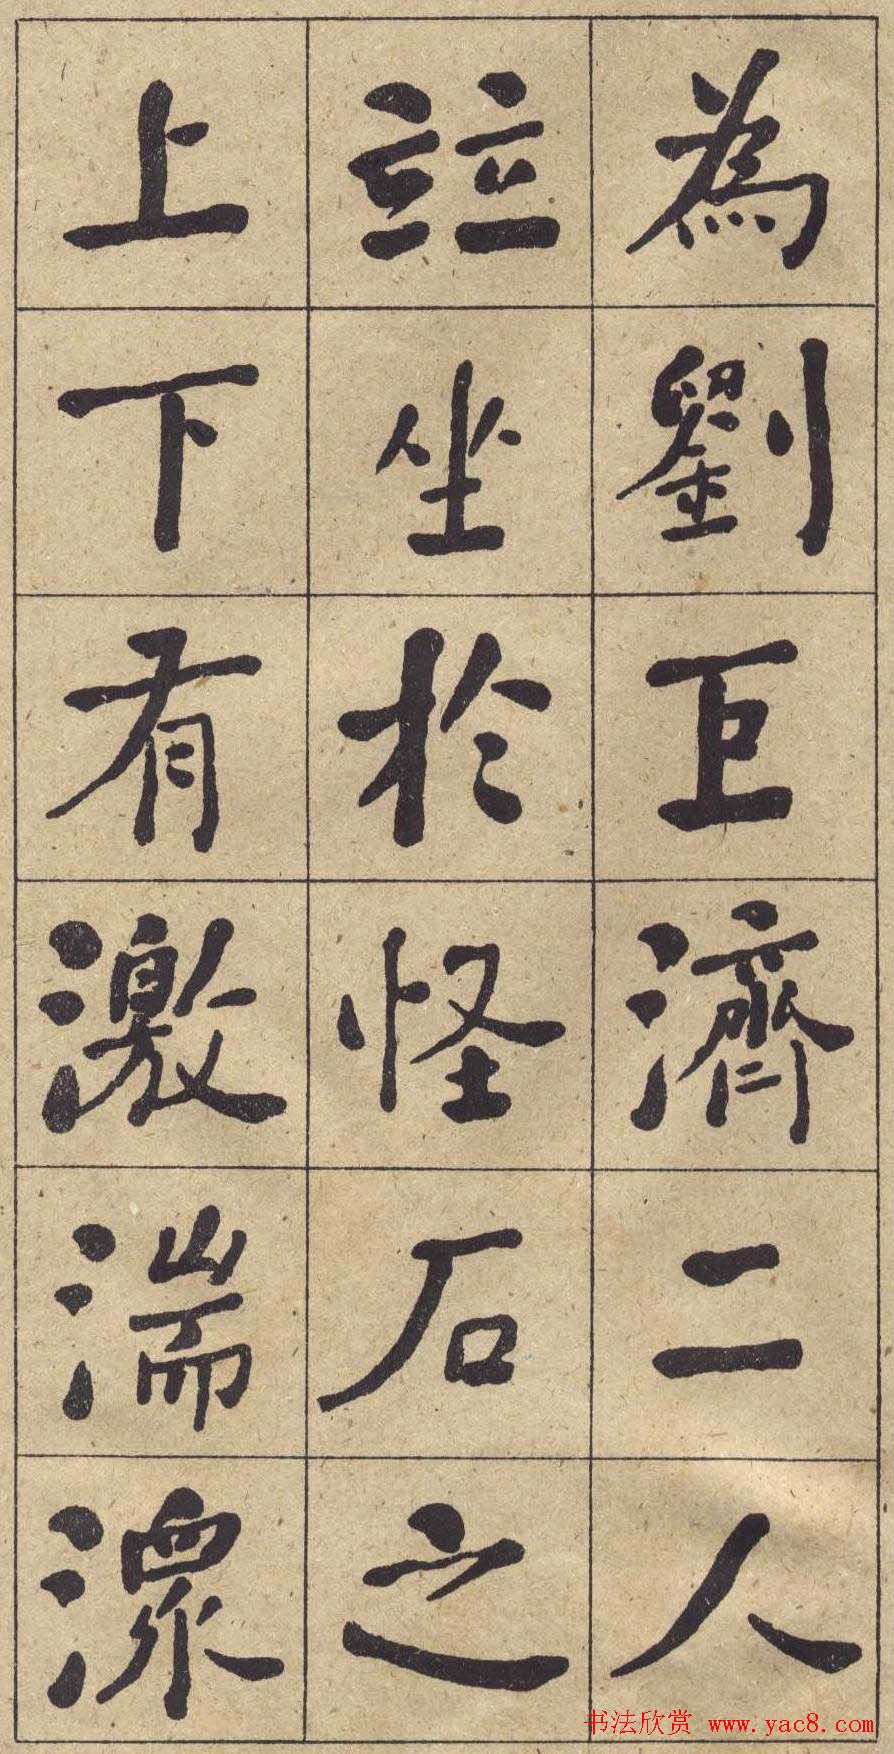 為劉巨濟二人
竝坐於怪石之
上下有激湍潨
书法欣赏 www.yac8.com